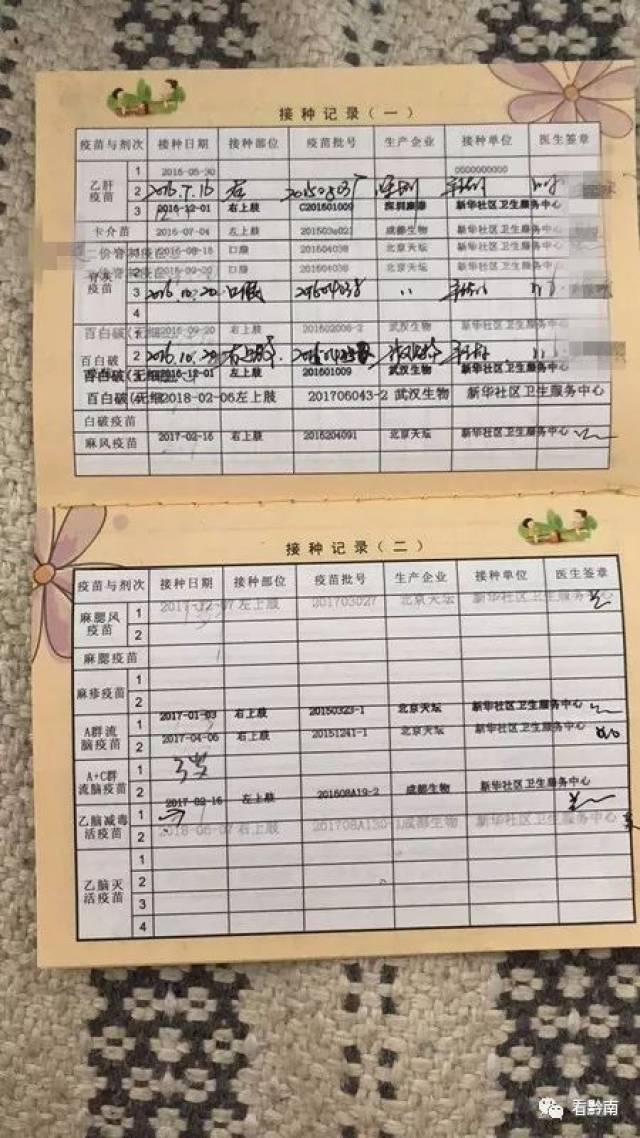 接种记录(一)
疫苗与剂次 接种日期 接种部位 疫苗批号 生产企业 接种单位 医生签章
乙肝疫苗
1 2016-06-30 0000000000
2 2016.7.16 右
3 2016-12-01 右上肢 C201601009 深圳康泰 新华社区卫生服务中心
卡介苗 2016-07-04 左上肢 201503a021 成都生物 新华社区卫生服务中心
脊灰疫苗
2016-08-16 口服 201604038 北京天坛 新华社区卫生服务中心
2016-09-20 口服 201604038 北京天坛 新华社区卫生服务中心
3 2016.10.20 口服 201604038 〃
百白破(无细 2016-09-20 右上肢 201602006-2 武汉生物 新华社区卫生服务中心
百白破 2 2016.10.20 右上肢
百白破(无细 2016-12-01 左上肢 201601009 武汉生物 新华社区卫生服务中心
百白破(无细 2018-02-06 左上肢 201706043-2 武汉生物 新华社区卫生服务中心
白破疫苗
麻风疫苗 2017-02-16 右上肢 2016204091 北京天坛 新华社区卫生服务中心
接种记录(二)
疫苗与剂次 接种日期 接种部位 疫苗批号 生产企业 接种单位 医生签章
麻腮风疫苗
1 2017-12-07 左上肢 201703027 北京天坛 新华社区卫生服务中心
2
麻腮疫苗
麻疹疫苗
1
2
2017-01-03 右上肢 20150323-1 北京天坛 新华社区卫生服务中心
A群流脑疫苗
1
2 2017-04-06 右上肢 20151241-1 北京天坛 新华社区卫生服务中心
A+C群流脑疫苗
1 3岁
2
2017-02-16 左上肢 201608A19-2 成都生物 新华社区卫生服务中心
乙脑减毒活疫苗
1
2 2018-06-07 右上肢 201708A130-1 成都生物 新华社区卫生服务中心
乙脑灭活疫苗
1
2
3
4
看黔南